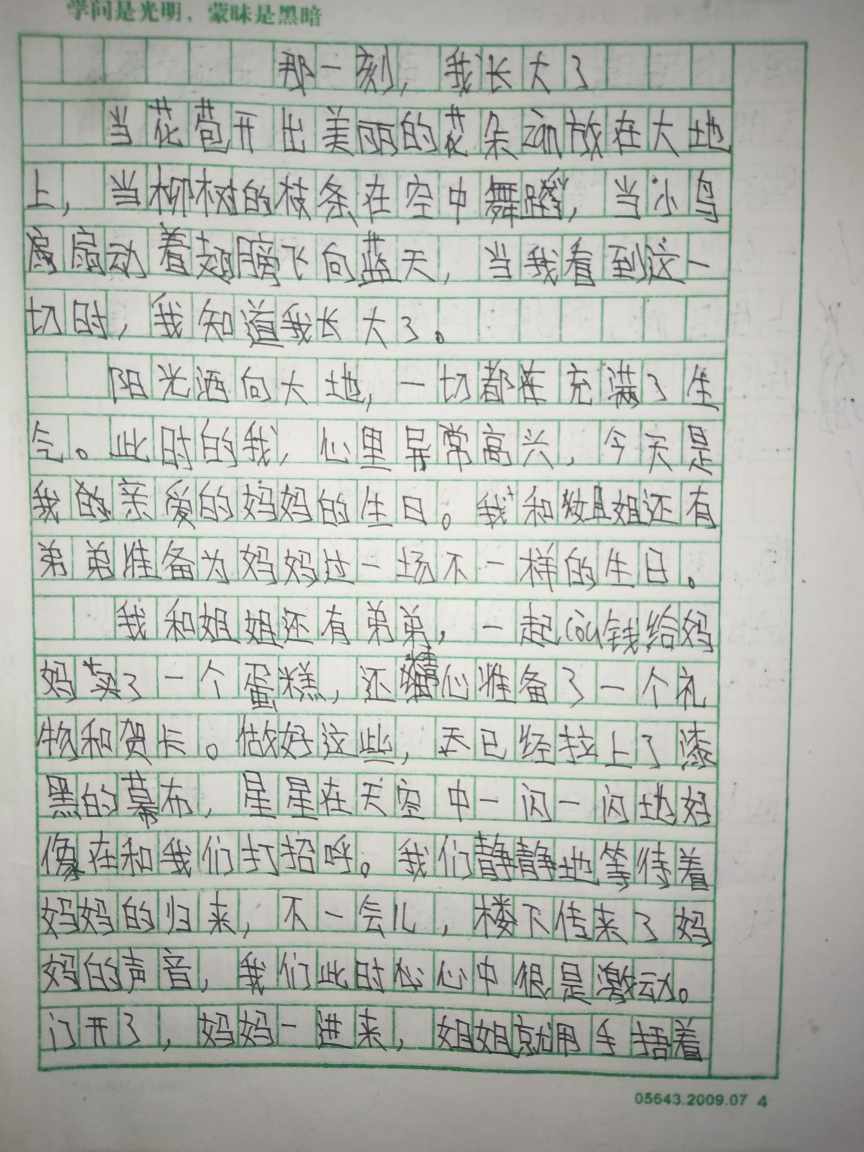 学问是光明，蒙昧是黑暗
那一刻，我长大了
当花苞开出美丽的花朵zàn放在大地
上，当柳树的枝条在空中舞蹈，当小鸟
扇扇动着翅膀飞向蓝天，当我看到这一
切时，我知道我长大了。
阳光洒向大地，一切都在充满了生
气。此时的我，心里异常高兴，今天是
我的亲爱的妈妈的生日。我和姐姐还有
弟弟准备为妈妈过一场不一样的生日。
我和姐姐还有弟弟，一起còu钱给妈
妈买了一个蛋糕，还精心准备了一个礼
物和贺卡。做好这些，天已经拉上了漆
黑的幕布，星星在天空中一闪一闪地好
像在和我们打招呼。我们静静地等待着
妈妈的归来，不一会儿，楼下传来了妈
妈的声音，我们此时心中很是激动。
门开了，妈妈一进来，姐姐就用手捂着
05643.2009.07 4